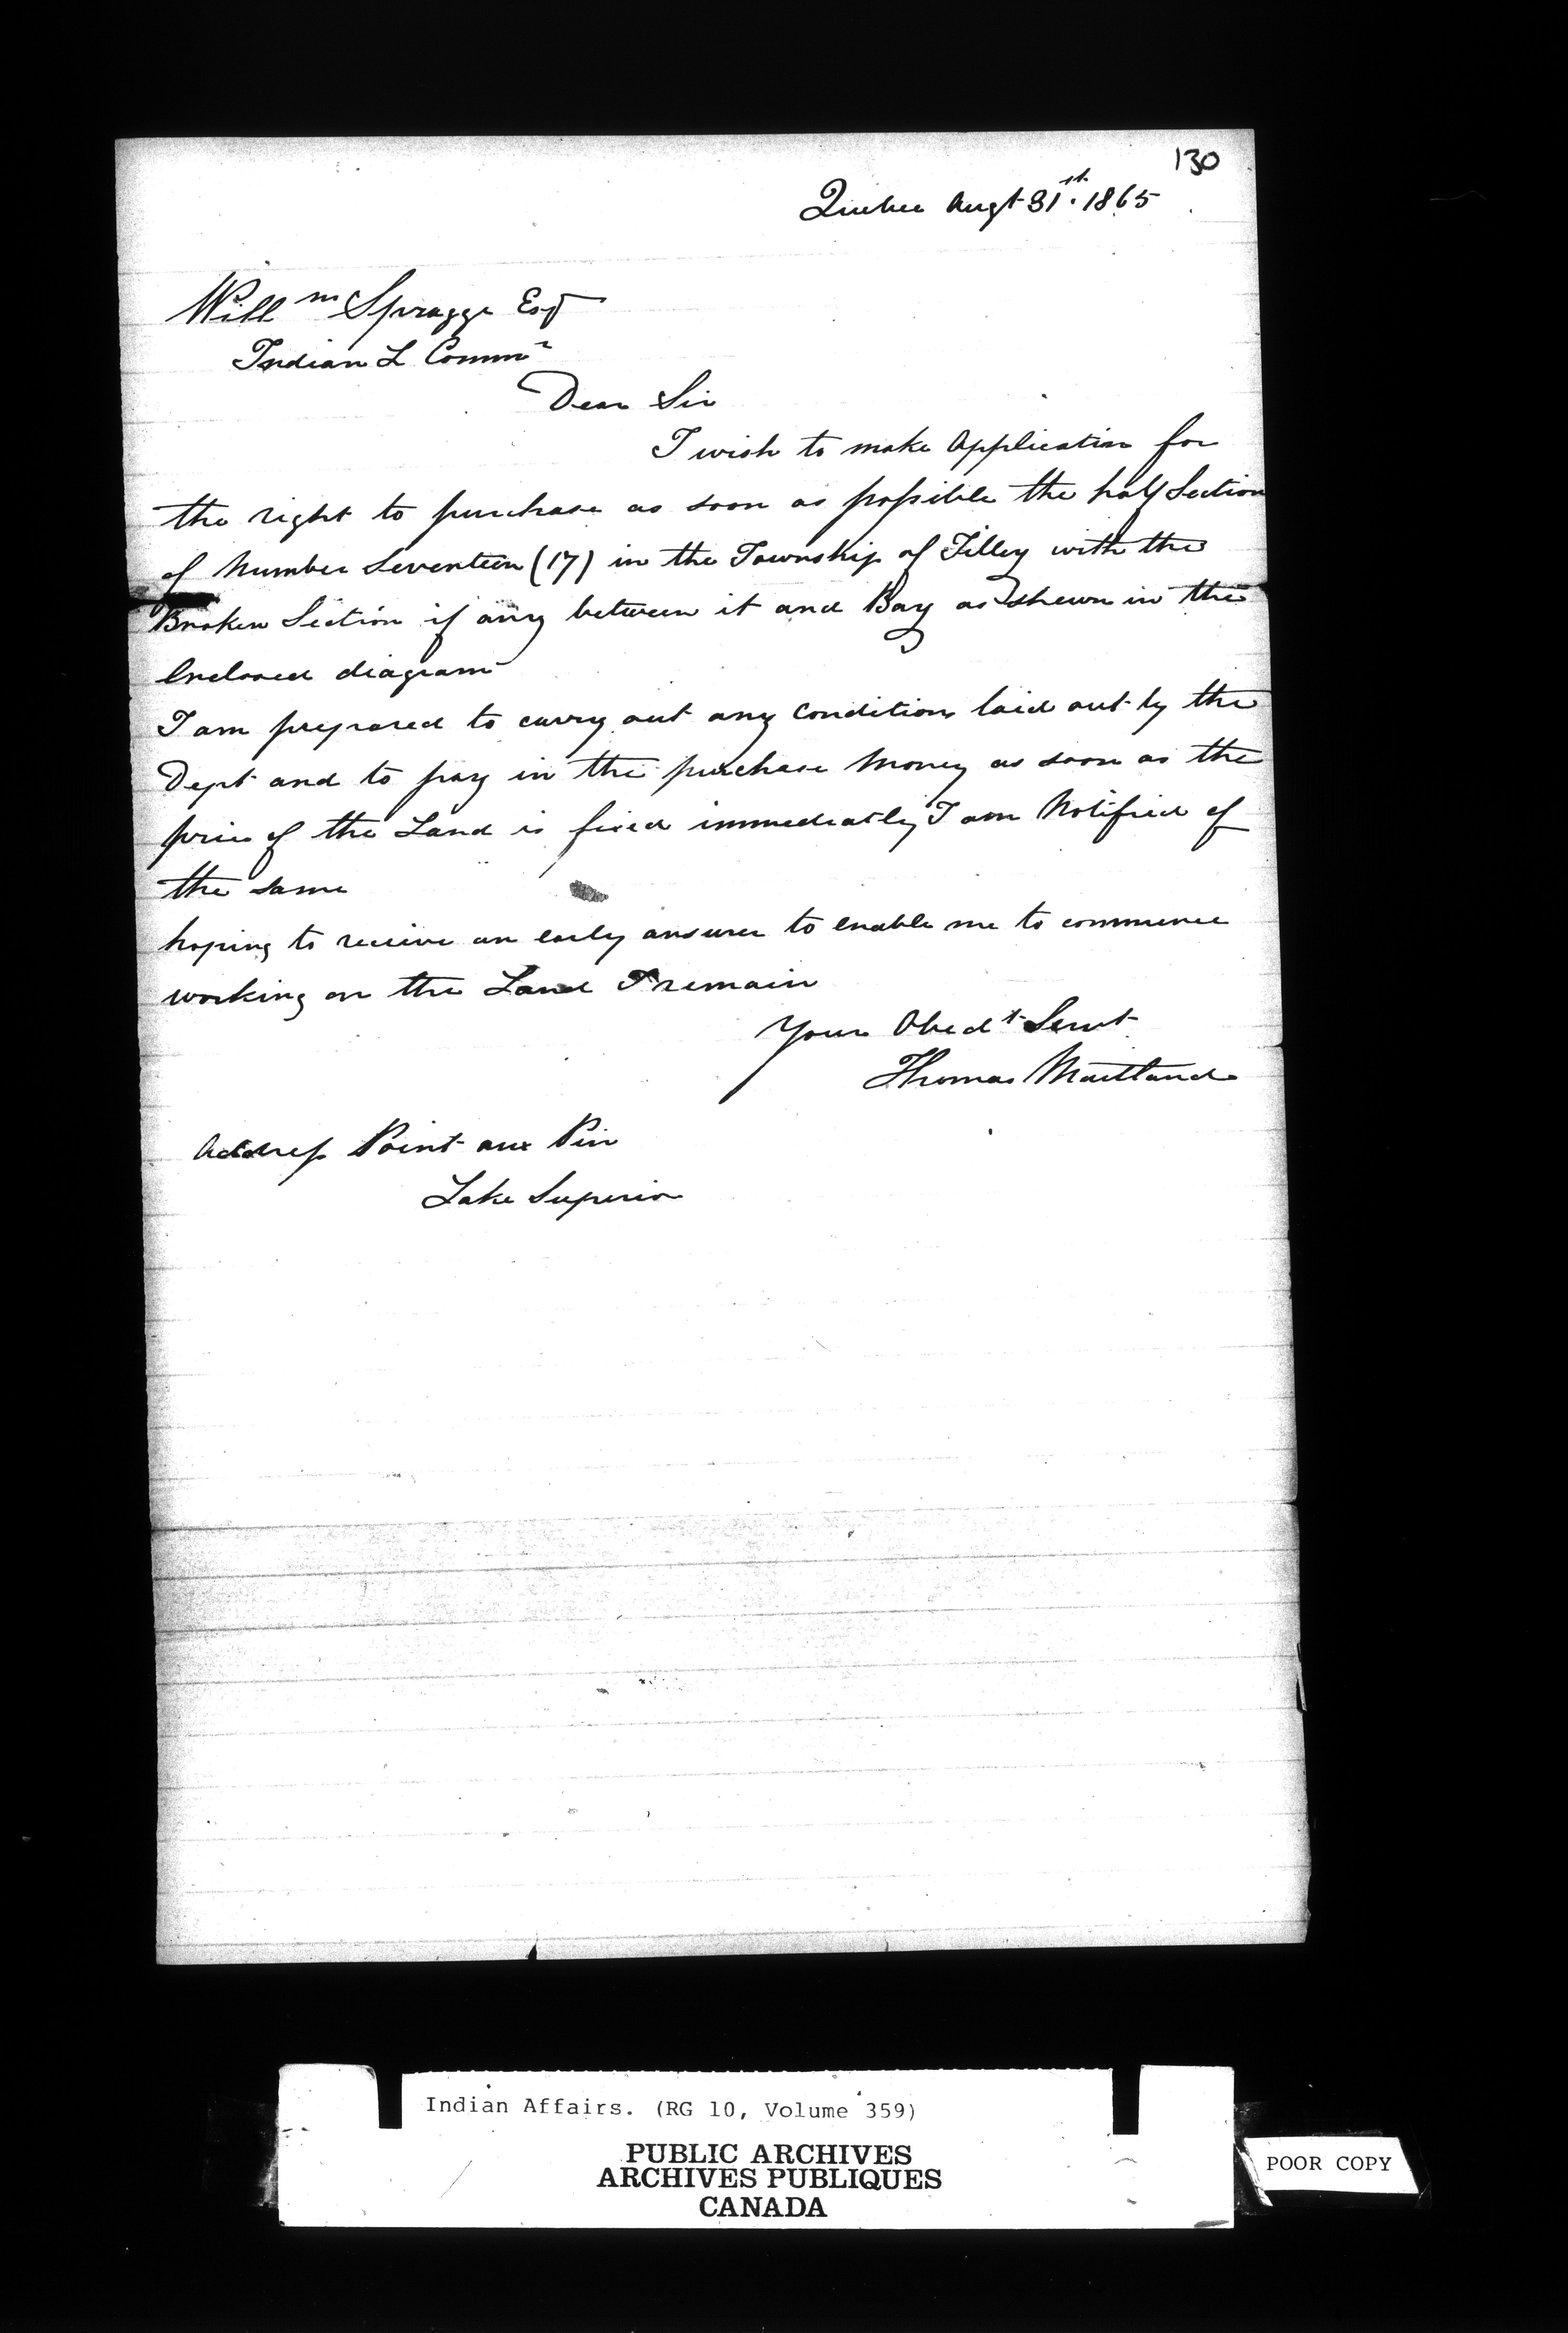 130
Quebec Augt 31st. 1865
Willm Spragge Esq
Indian L Commr
Dear Sir
I wish to make Application for
the right to purchase as soon as possible the half Section
of Number Seventeen (17) in the Township of Tilley with the
Broken Section if any between it and Bay as shewn in the
Enclosed diagram
I am prepared to carry out any Conditions laid out by the
Dept and to pay in the purchase Money as soon as the
price of the Land is fixed immediatly I am Notified of
the same
hoping to receive an early answer to Enable me to commence
working on the Land I remain
Your Obedt Servt
Thomas Maitland
Address Point aux Pin
Lake Superior
Indian Affairs. (RG 10, Volume 359)
PUBLIC ARCHIVES
ARCHIVES PUBLIQUES
CANADA
POOR COPY